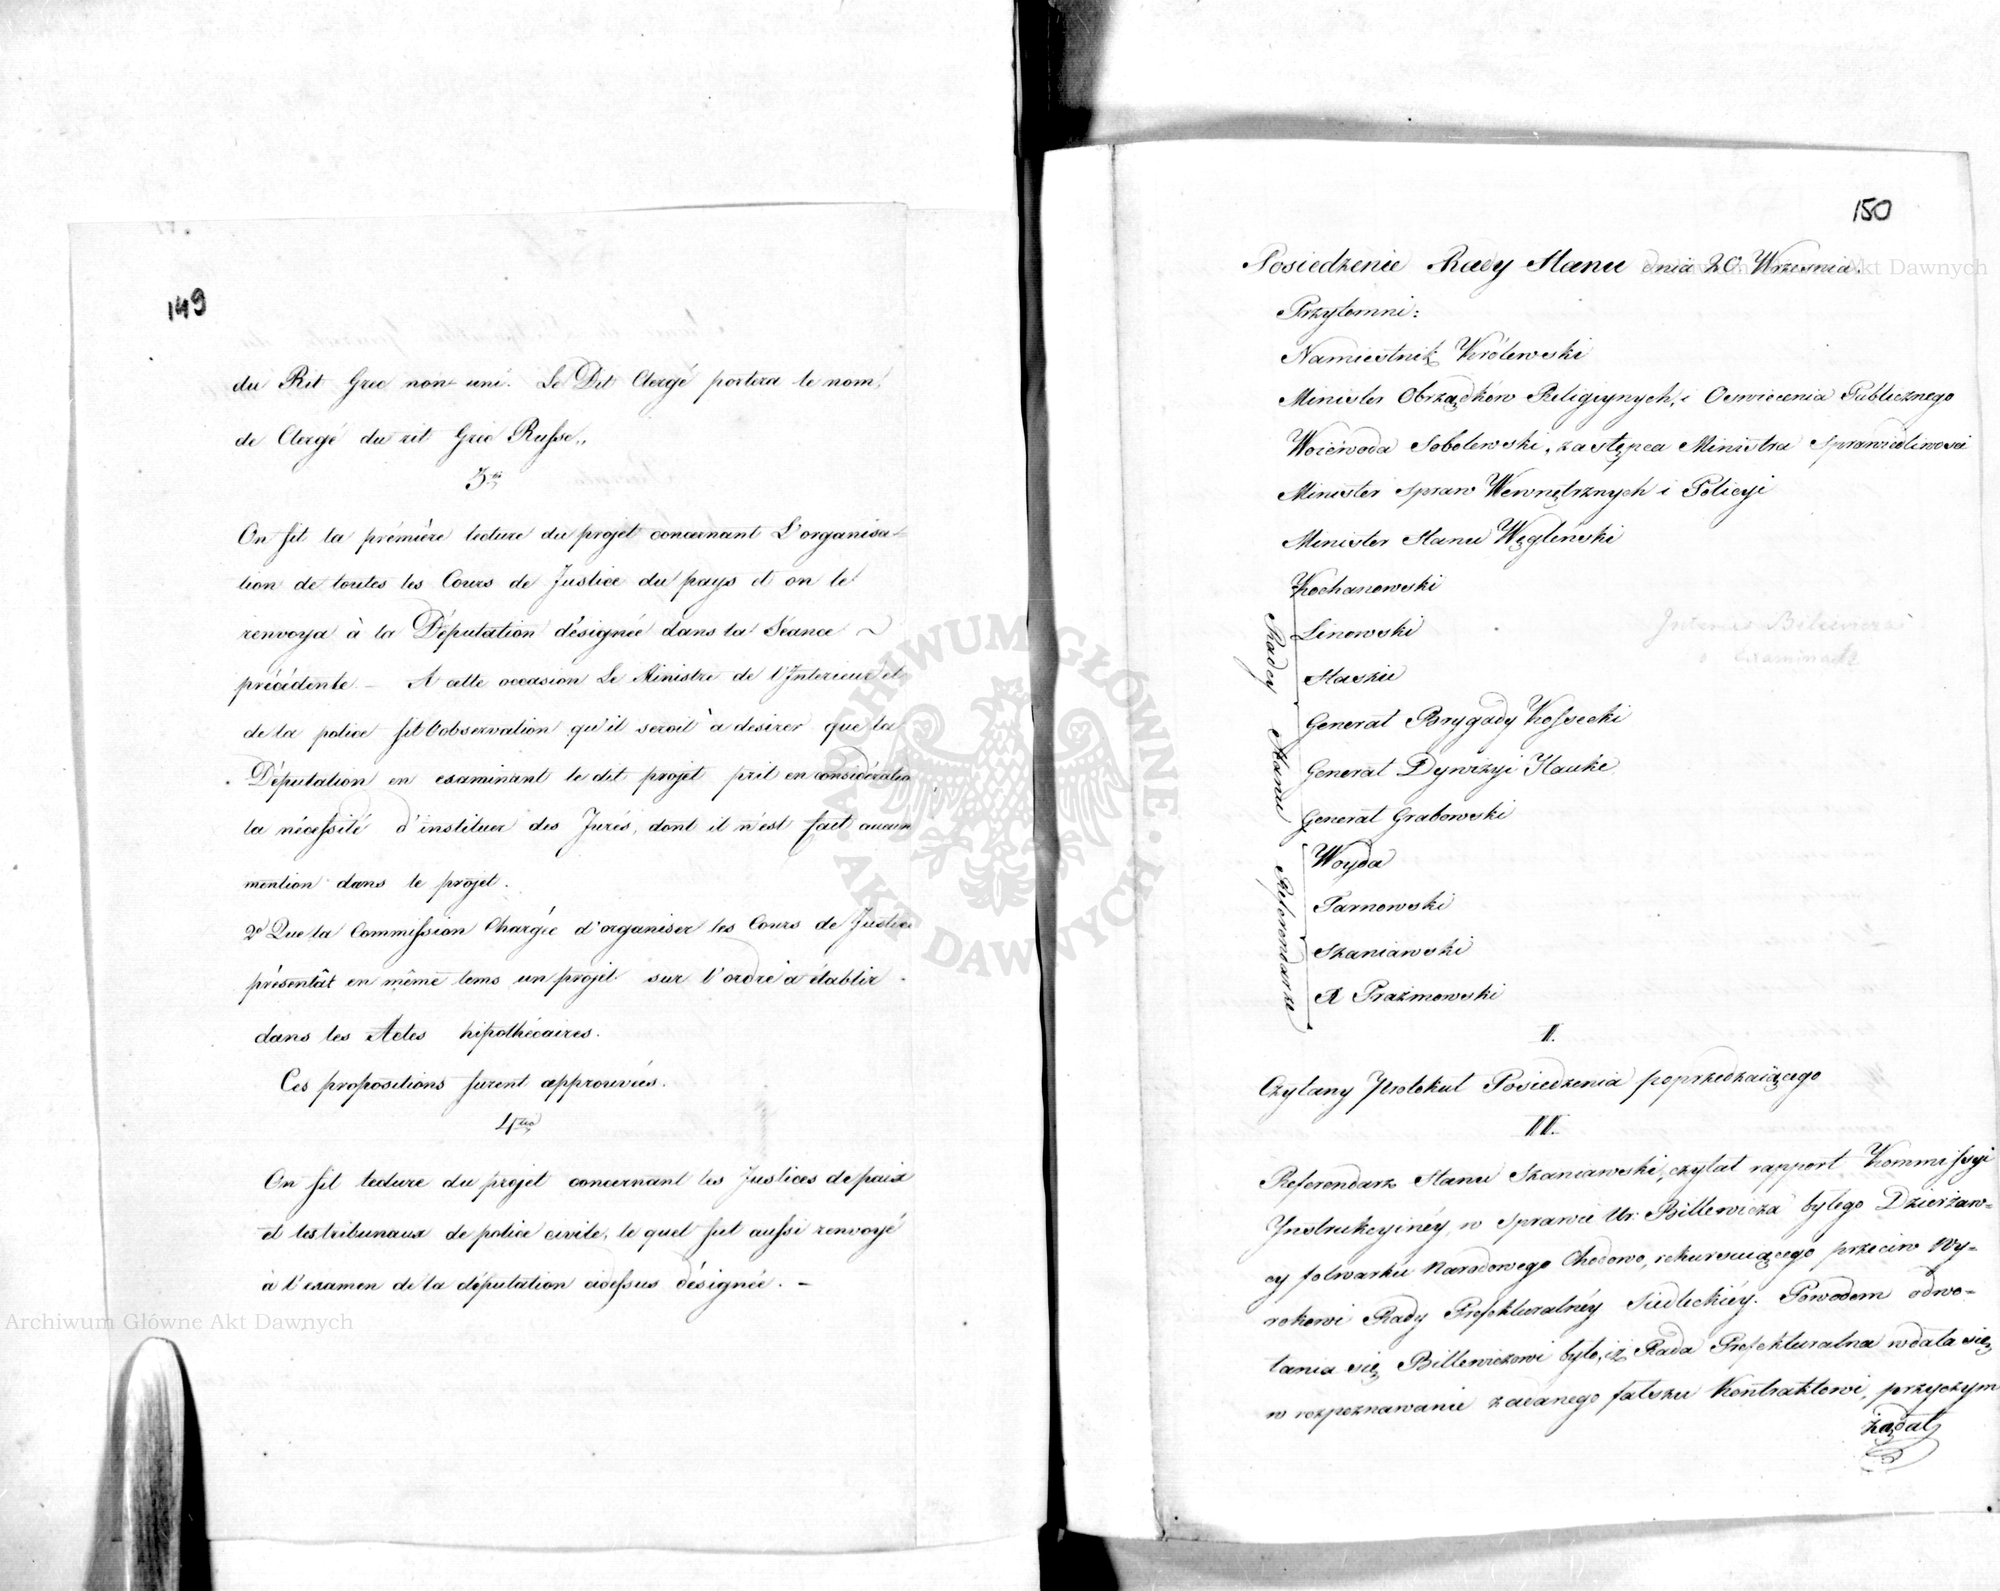 149
du Rit Grec non uni. Le Dit Clergé portera le nom
de Clergé du rit Grec Russe„
3º
On fit la prémière lecture du projet concernant L'organisa-
tion de toutes les Cours de Justice du pays et on le
renvoya à la Députation désignée dans la Séance ~
précédente. — A cette occasion Le Ministre de l'Interieur et
de la police fit l'observation qu'il seroit à desirer que la
Députation en examinant le dit projet prit en considération
la nécessité d'instituer des Jurés, dont il n'est fait aucun
mention dans le projet.
2º Que la Commission Chargée d'organiser les Cours de Justice
présentât en même tems un projet sur l'ordre à établir
dans les Actes hipothécaires.
Ces propositions furent approuvées.
4to
On fit lecture du projet concernant les Justices de paix
et les tribunaux de police civile, le quel fut aussi renvoyé
à l'examen de la députation cidessus désignée. —
150
Posiedzenie Rady Stanu dnia 20 Wrzesnia.
Przytomni:
Namiestnik Królewski
Minister Obrządków Religiynych, i Oswiecenia Publicznego
Woiewoda Sobolewski, zastępca Ministra Sprawiedliwosci
Minister Spraw Wewnętrznych i Policyi
Minister Stanu Węgleński
Radcy Stanu
Kochanowski
Linowski
Staskic
Generał Brygady Kossecki
Generał Dywizyi Hauke
Generał Grabowski
Referendarze
Woyda
Tarnowski
Szaniawski
X Prażmowski
II.
Czytany Protokuł Posiedzenia poprzedzaiącego
III.
Referendarz Stanu Szaniawski, czytał rapport Kommissyi
Instrukcyinéy, w sprawie Ur: Billewicza byłego Dzierżaw-
cy folwarku Narodowego Chodowo, rekursuiącego przeciw Wy-
rokowi Rady Prefekturalnéy Siedleckiéy. Powodem odwo-
łania się Billewiczowi było, iż Rada Prefekturalna wdała się
w rozpoznawanie zadanego fałszu Kontraktowi, przyczym
żądał
Archiwum Główne Akt Dawnych